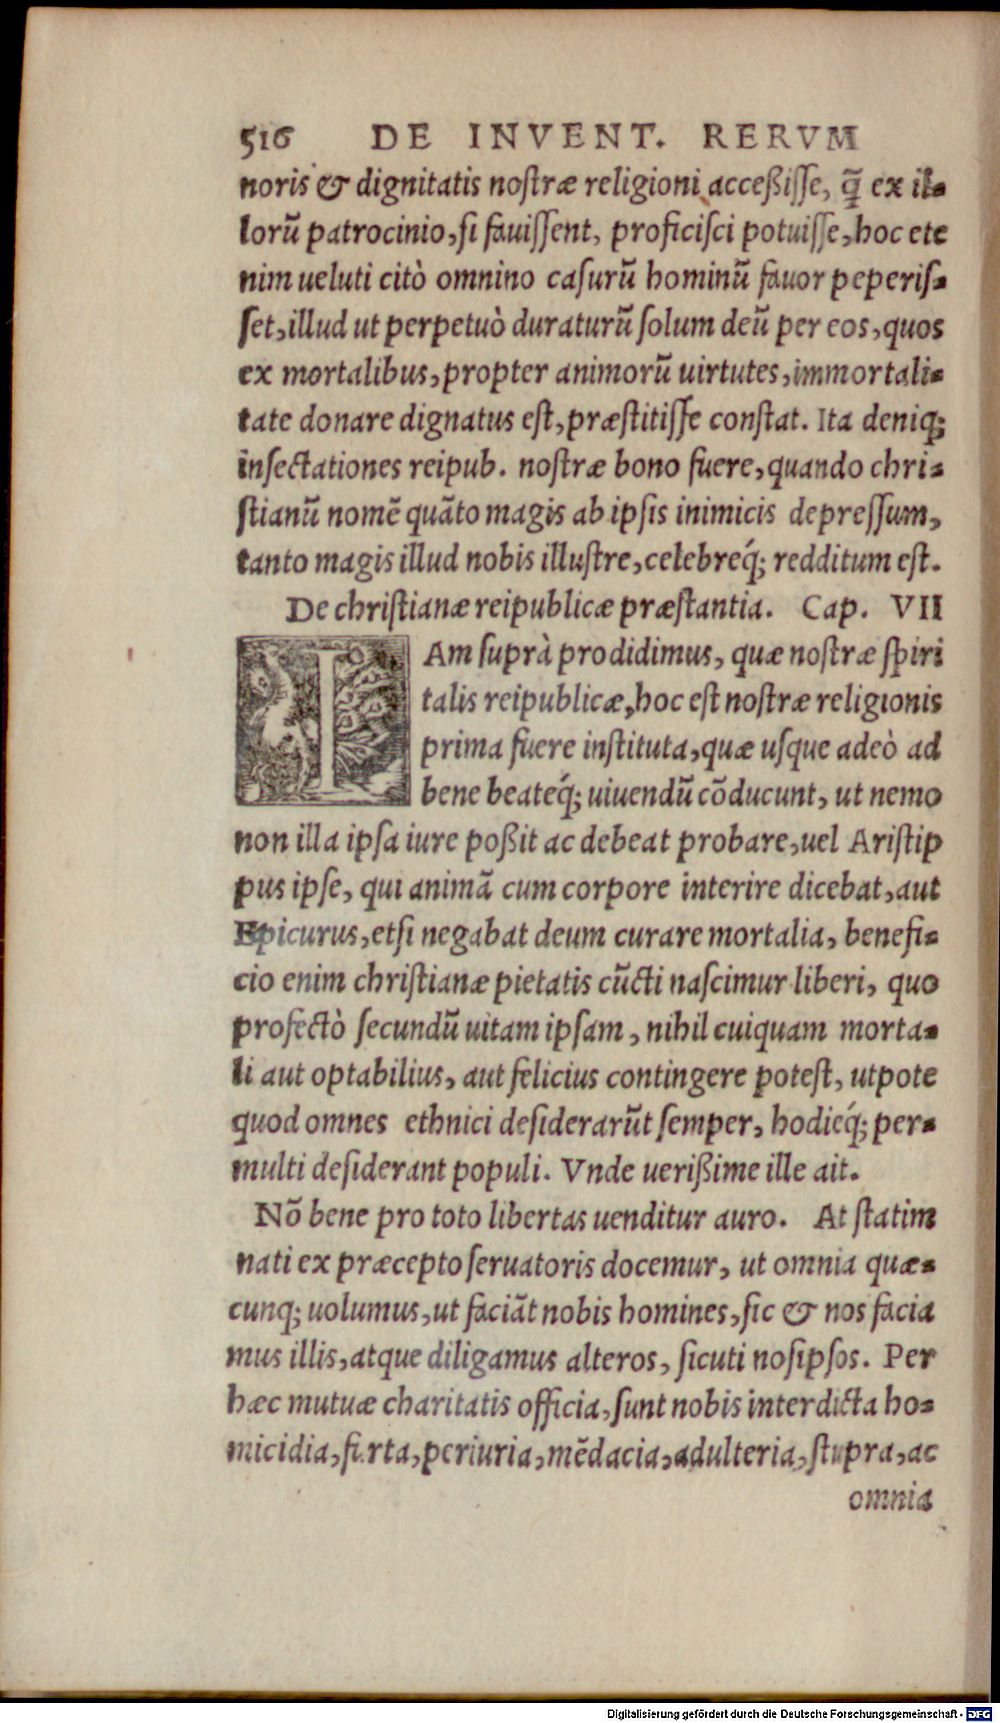 516 DE INVENT. RERVM
noris & dignitatis nostræ religioni accessisse, q̃ ex il-
lorũ patrocinio, si fauissent, proficisci potuisse, hoc ete
nim ueluti citò omnino casurũ hominũ fauor peperis-
set, illud ut perpetuò duraturũ solum deũ per eos, quos
ex mortalibus, propter animorũ uirtutes, immortali-
tate donare dignatus est, præstitisse constat. Ita deniq;
insectationes reipub. nostræ bono fuere, quando chri-
stianũ nomẽ quãto magis ab ipsis inimicis depressum,
tanto magis illud nobis illustre, celebreq́; redditum est.
De christianæ reipublicæ præstantia. Cap. VII
IAm suprà prodidimus, quæ nostræ spiri
talis reipublicæ, hoc est nostræ religionis
prima fuere instituta, quæ usque adeò ad
bene beateq́; uiuendũ cõducunt, ut nemo
non illa ipsa iure poßit ac debeat probare, uel Aristip
pus ipse, qui animã cum corpore interire dicebat, aut
Epicurus, etsi negabat deum curare mortalia, benefi-
cio enim christianæ pietatis cũcti nascimur liberi, quo
profectò secundũ uitam ipsam, nihil cuiquam morta-
li aut optabilius, aut felicius contingere potest, utpote
quod omnes ethnici desiderarũt semper, hodieq́; per-
multi desiderant populi. Vnde uerißime ille ait.
Nõ bene pro toto libertas uenditur auro. At statim
nati ex præcepto seruatoris docemur, ut omnia quæ-
cunq; uolumus, ut faciãt nobis homines, sic & nos facia
mus illis, atque diligamus alteros, sicuti nosipsos. Per
hæc mutuæ charitatis officia, sunt nobis interdicta ho-
micidia, furta, periuria, mẽdacia, adulteria, stupra, ac
omnia
Digitalisierung gefördert durch die Deutsche Forschungsgemeinschaft - DFG